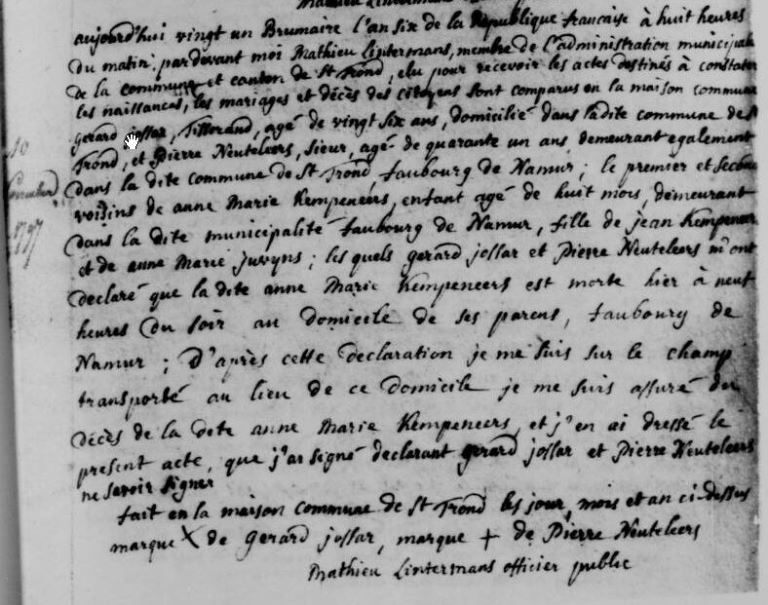 aujourd'hui vingt un Brumaire l'an six de la Republique francaise à huit heures
du matin. pardevant moi Mathieu Lintermans, membre de l'administration municipale
de la commune et canton de St Trond, elu pour recevoir les actes destinés à constater
les naissances, les mariages et décès des citoyens sont comparus en la maison commune
gerard jossar, Tisserand, agé de vingt six ans, domicilié dans ladite commune de St
Trond, et Pierre Neuteleers, sieur, agé de quarante un ans, demeurant egalement
dans la dite commune de St Trond faubourg de Namur; le premier et second
voisins de anne Marie Kempeneers, enfant agé de huit mois, demeurant
dans la dite municipalité faubourg de Namur, fille de jean Kempeneers
et de anne Marie juvyns; les quels gerard jossar et Pierre Neuteleers m'ont
declaré que la dite anne Marie Kempeneers est morte hier à neuf
heures du soir au domicile de ses parens, faubourg de
Namur; D'après cette declaration je me suis sur le champ
transporté au lieu de ce domicile je me suis assuré du
décès de la dite anne Marie Kempeneers, et j'en ai dressé le
present acte, que j'ai signé declarant gerard jossar et Pierre Neuteleers
ne savoir signer
10
1797
fait en la maison commune de St Trond les jour, mois et an ci-dessus
marque X de Gerard jossar, marque + de Pierre Neuteleers
Mathieu Lintermans officier public